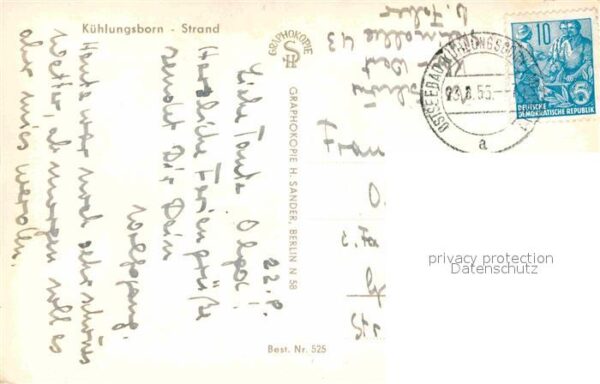 Kühlungsborn - Strand
22.8.
Liebe Tante Olga!
Herzliche Feriengrüße
sendet Dir Dein
Wolfgang.
Heute war noch sehr schönes
Wetter, ab morgen soll es
aber mies werden.
GRAPHOKOPIE
SH
GRAPHOKOPIE H. SANDER, BERLIN N 58
Best. Nr. 525
OSTSEEBAD KÜHLUNGSBORN
23.8.55.
a
10
5
DEUTSCHE
DEMOKRATISCHE REPUBLIK
Frau
O.
privacy protection
Datenschutz